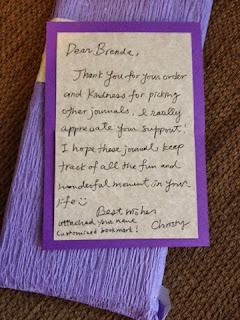 Dear Brenda,
Thank you for your order
and kindness for picking
other journals. I really
appreciate your support!
I hope these journals keep
track of all the fun and
wonderful moment in your
life
Best wishes
attached your name
Customized bookmark!
Christy